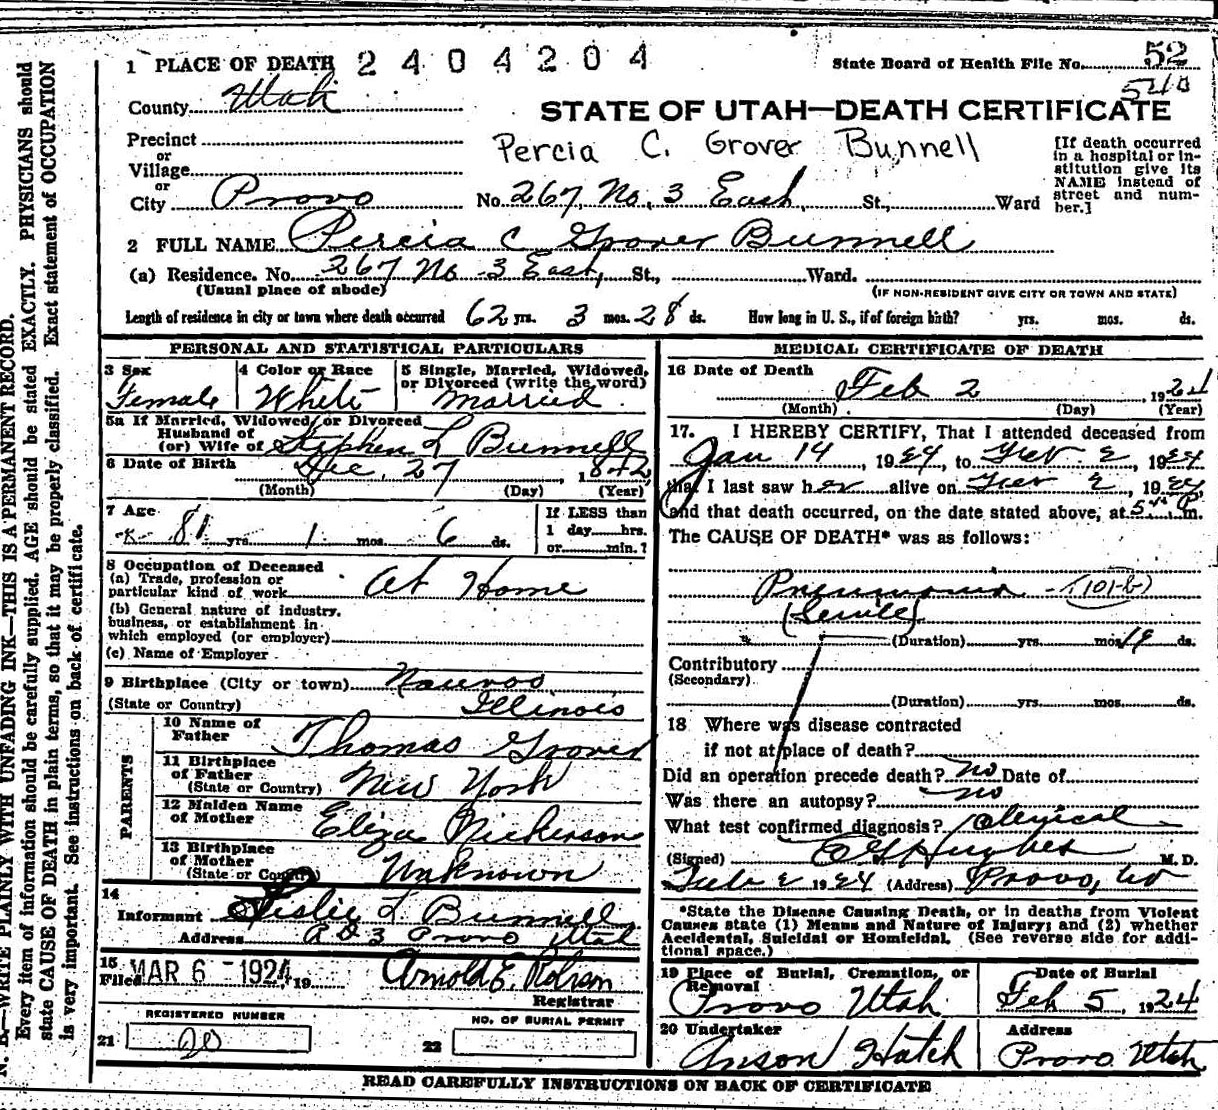 1 PLACE OF DEATH 2404204 State Board of Health File No. 52
540
County Utah
STATE OF UTAH—DEATH CERTIFICATE
Precinct
or
Village
or
City Provo
Percia C. Grover Bunnell
No. 267, No. 3 East, St., Ward
[If death occurred in a hospital or in-
stitution give its NAME instead of street and num-
ber.]
2 FULL NAME Percia C Grover Bunnell
(a) Residence. No. 267 No 3 East, St., Ward.
(Usual place of abode) (IF NON-RESIDENT GIVE CITY OR TOWN AND STATE)
Length of residence in city or town where death occurred 62 yrs. 3 mos. 28 ds. How long in U. S., if of foreign birth? yrs. mos. ds.
PERSONAL AND STATISTICAL PARTICULARS
3 Sex Female
4 Color or Race White
5 Single, Married, Widowed, or Divorced (write the word) Married
5a If Married, Widowed, or Divorced
Husband of
(or) Wife of Stephen L Bunnell
6 Date of Birth Dec. 27, 1842
(Month) (Day) (Year)
7 Age 81 yrs. 1 mos. 6 ds.
If LESS than
1 day hrs.
or min.?
8 Occupation of Deceased
(a) Trade, profession or
particular kind of work At Home
(b) General nature of industry,
business, or establishment in
which employed (or employer)
(c) Name of Employer
9 Birthplace (City or town) Nauvoo
(State or Country) Illinois
PARENTS
10 Name of Father Thomas Grover
11 Birthplace of Father
(State or Country) New York
12 Maiden Name of Mother Eliza Nickerson
13 Birthplace of Mother
(State or Country) Unknown
14
Informant Leslie L Bunnell
Address R D 3 Provo Utah
15
Filed MAR 6 - 1924, 19 Arnold E.
Registrar
REGISTERED NUMBER
21 20
NO. OF BURIAL PERMIT
22
MEDICAL CERTIFICATE OF DEATH
16 Date of Death
Feb 2 1924
(Month) (Day) (Year)
17. I HEREBY CERTIFY, That I attended deceased from
Jan 14, 1924, to Feb 2, 1924
that I last saw her alive on Feb 2, 1924
and that death occurred, on the date stated above, at 5 P m.
The CAUSE OF DEATH* was as follows:
Pneumonia - (101-b)
(Senile)
(Duration) yrs. mos. 19 ds.
Contributory
(Secondary)
(Duration) yrs. mos. ds.
18 Where was disease contracted
if not at place of death?
Did an operation precede death? no Date of
Was there an autopsy? no
What test confirmed diagnosis? Clinical
(Signed) Hughes M. D.
Feb 2 1924 (Address) Provo, Ut
*State the Disease Causing Death, or in deaths from Violent
Causes state (1) Means and Nature of Injury; and (2) whether
Accidental, Suicidal or Homicidal. (See reverse side for addi-
tional space.)
19 Place of Burial, Cremation, or Removal
Provo Utah
Date of Burial
Feb 5, 1924
20 Undertaker
Anson Hatch
Address
Provo Utah
READ CAREFULLY INSTRUCTIONS ON BACK OF CERTIFICATE
N. B.—WRITE PLAINLY WITH UNFADING INK—THIS IS A PERMANENT RECORD.
Every item of information should be carefully supplied. AGE should be stated EXACTLY. PHYSICIANS should
state CAUSE OF DEATH in plain terms, so that it may be properly classified. Exact statement of OCCUPATION
is very important. See instructions on back of certificate.